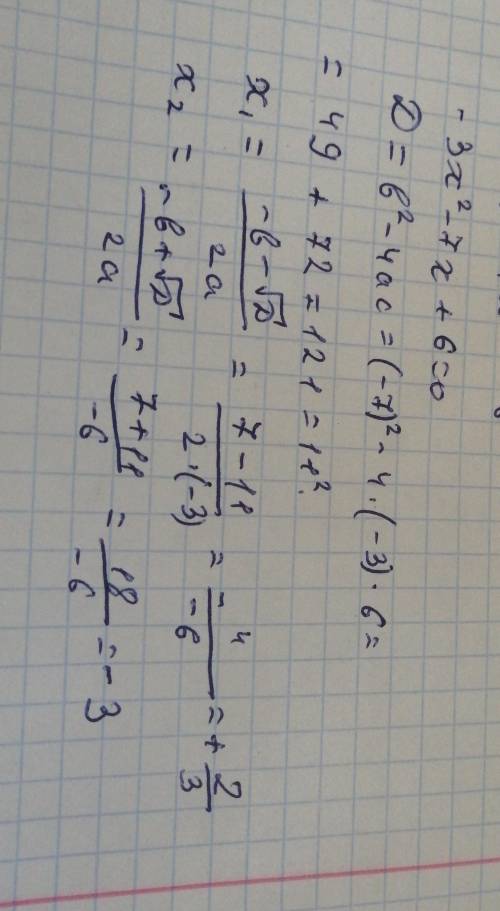 -3x²-7x+6=0
D=b²-4ac=(-7)²-4·(-3)·6=
=49+72=121=11².
x₁ = (-b-√D)/(2a) = (7-11)/(2·(-3)) = (-4)/(-6) = +2/3
x₂ = (-b+√D)/(2a) = (7+11)/(-6) = 18/(-6) = -3